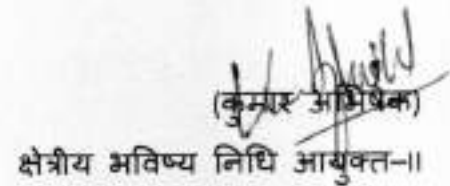 (कुमार अभिषेक)
क्षेत्रीय भविष्य निधि आयुक्त-II